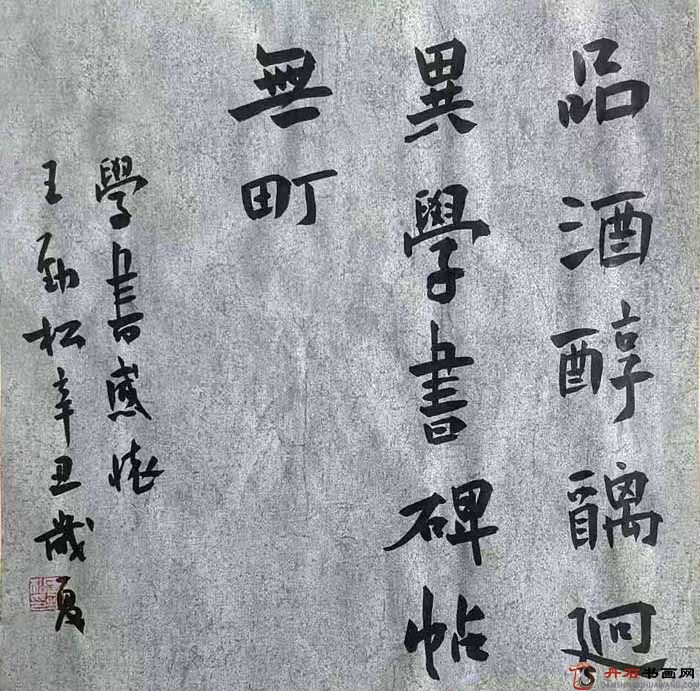 品酒醇醨迥
異學書碑帖
無町
學書感懷
王勁松辛丑歲夏
丹石书画网
DANSHISHUHUAWANG.COM